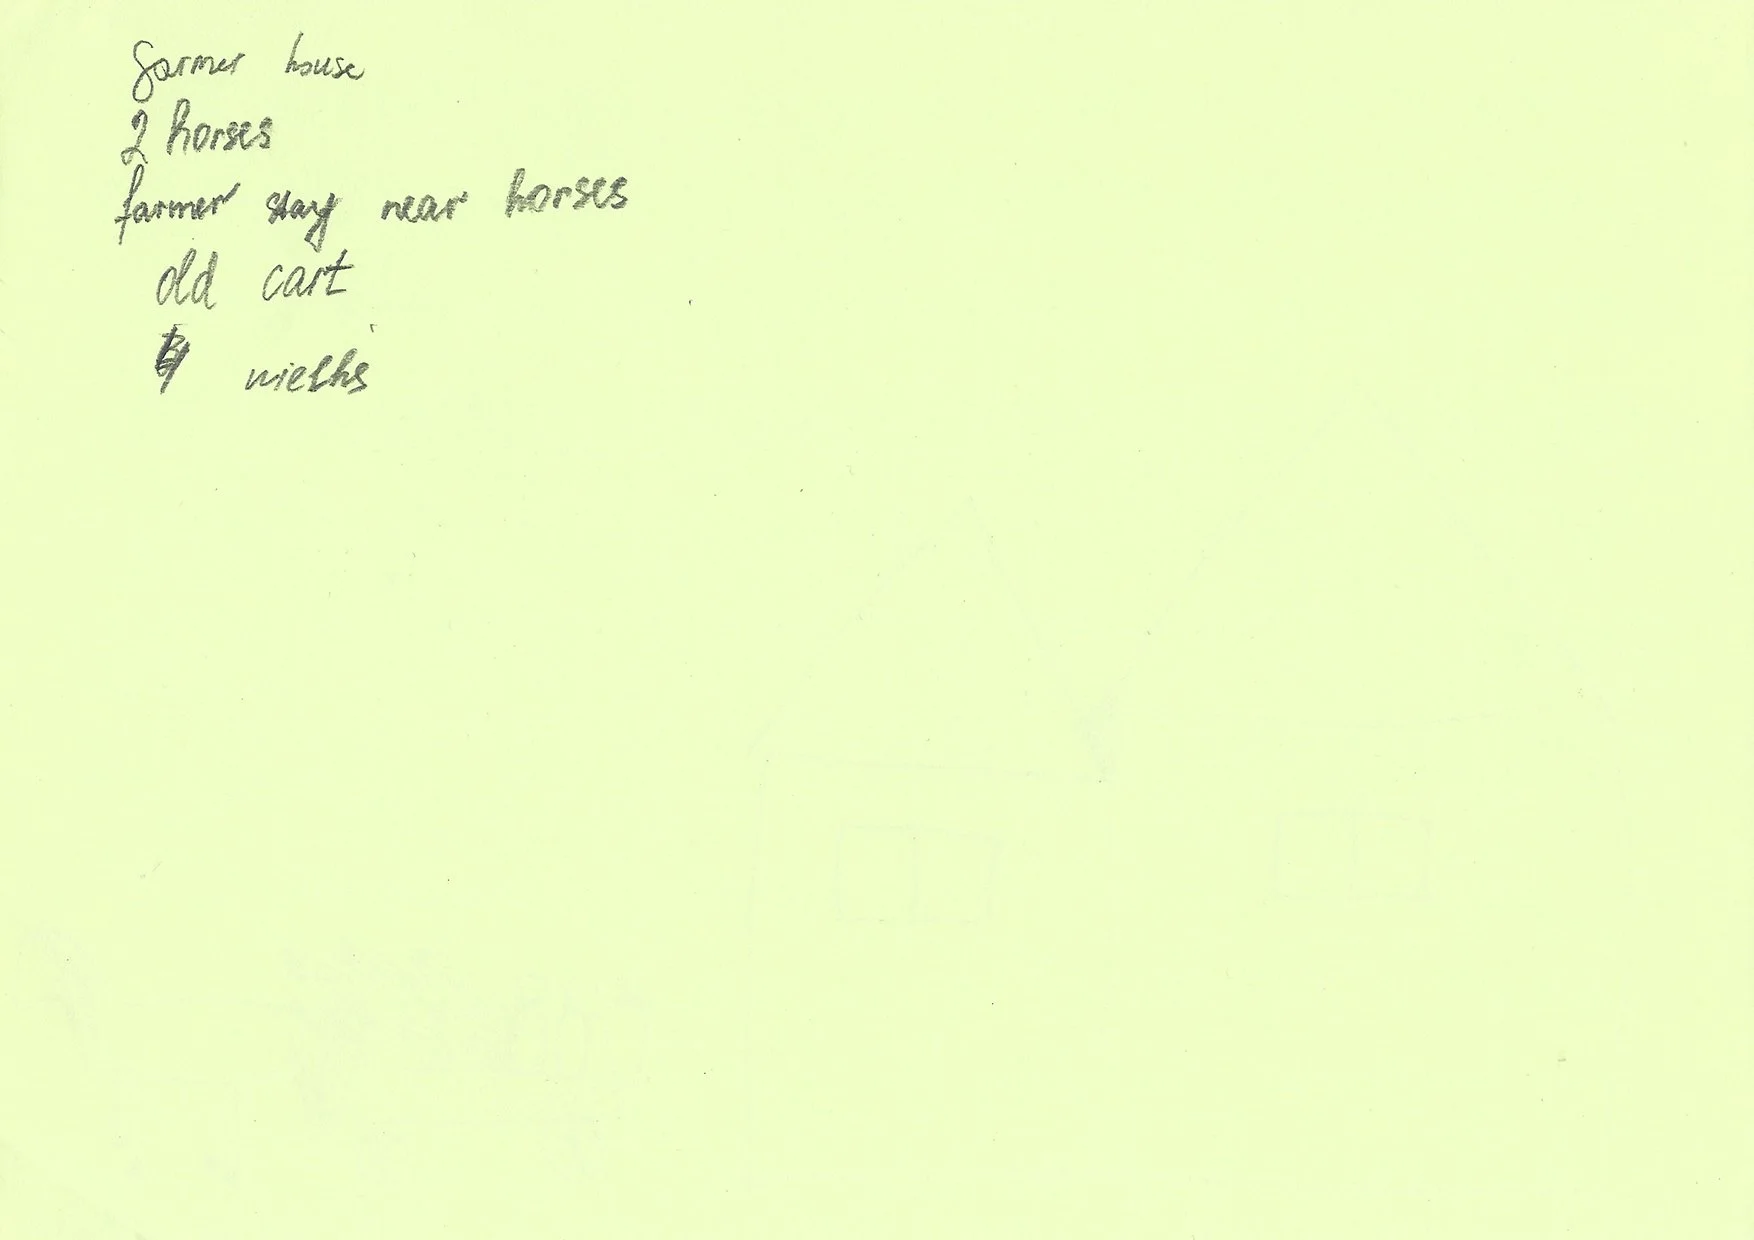 farmer house
2 horses
farmer stay near horses
old cart